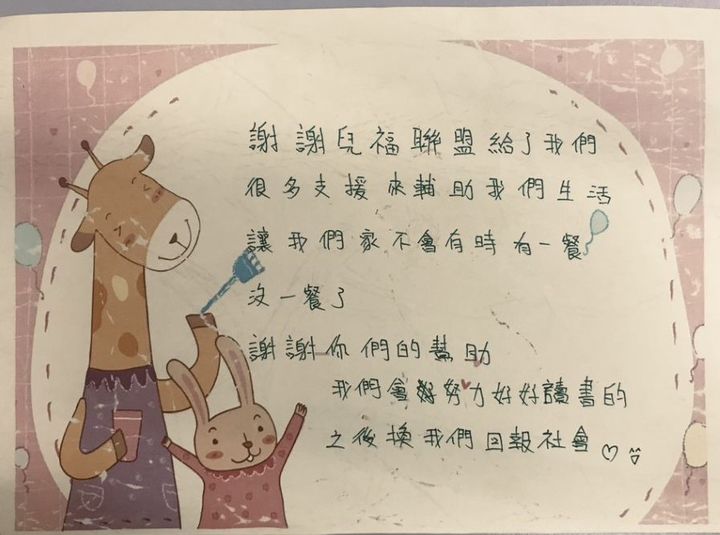 謝謝兒福聯盟給了我們
很多支援來輔助我們生活
讓我們家不會有時有一餐
沒一餐了
謝謝你們的幫助
我們會努力好好讀書的
之後換我們回報社會♡